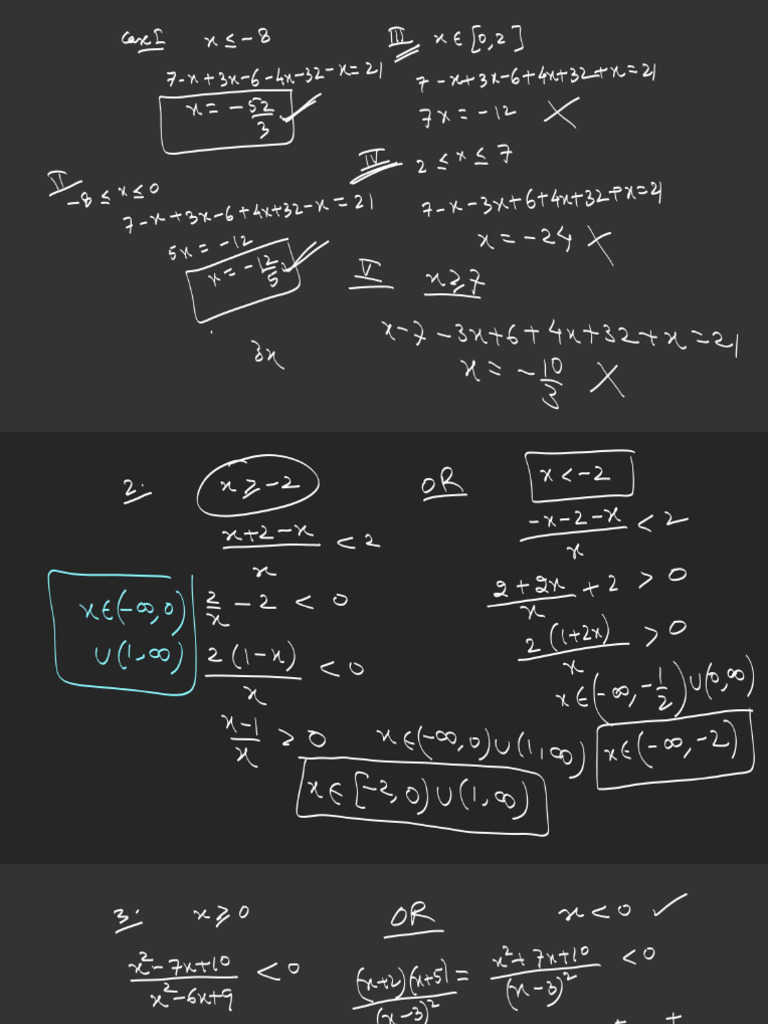 Case I x ≤ -8
7-x+3x-6-4x-32-x=21
x = -52/3 ✓
II -8 ≤ x ≤ 0
7-x+3x-6+4x+32-x=21
5x = -12
x = -12/5 ✓
3x
III x ∈ [0,2]
7-x+3x-6+4x+32+x=21
7x = -12 ✗
IV 2 ≤ x ≤ 7
7-x-3x+6+4x+32+x=21
x = -24 ✗
V x ≥ 7
x-7-3x+6+4x+32+x=21
x = -10/3 ✗
2. x ≥ -2 OR x < -2
(x+2-x)/x < 2
2/x - 2 < 0
2(1-x)/x < 0
(x-1)/x > 0 x∈(-∞,0)∪(1,∞)
x∈[-2,0)∪(1,∞)
x∈(-∞,0)
∪(1,∞)
(-x-2-x)/x < 2
(2+2x)/x + 2 > 0
2(1+2x)/x > 0
x∈(-∞,-1/2)∪(0,∞)
x∈(-∞,-2)
3. x ≥ 0 OR x < 0 ✓
(x²-7x+10)/(x²-6x+9) < 0
(x+2)(x+5)/(x-3)² = (x²+7x+10)/(x-3)² < 0